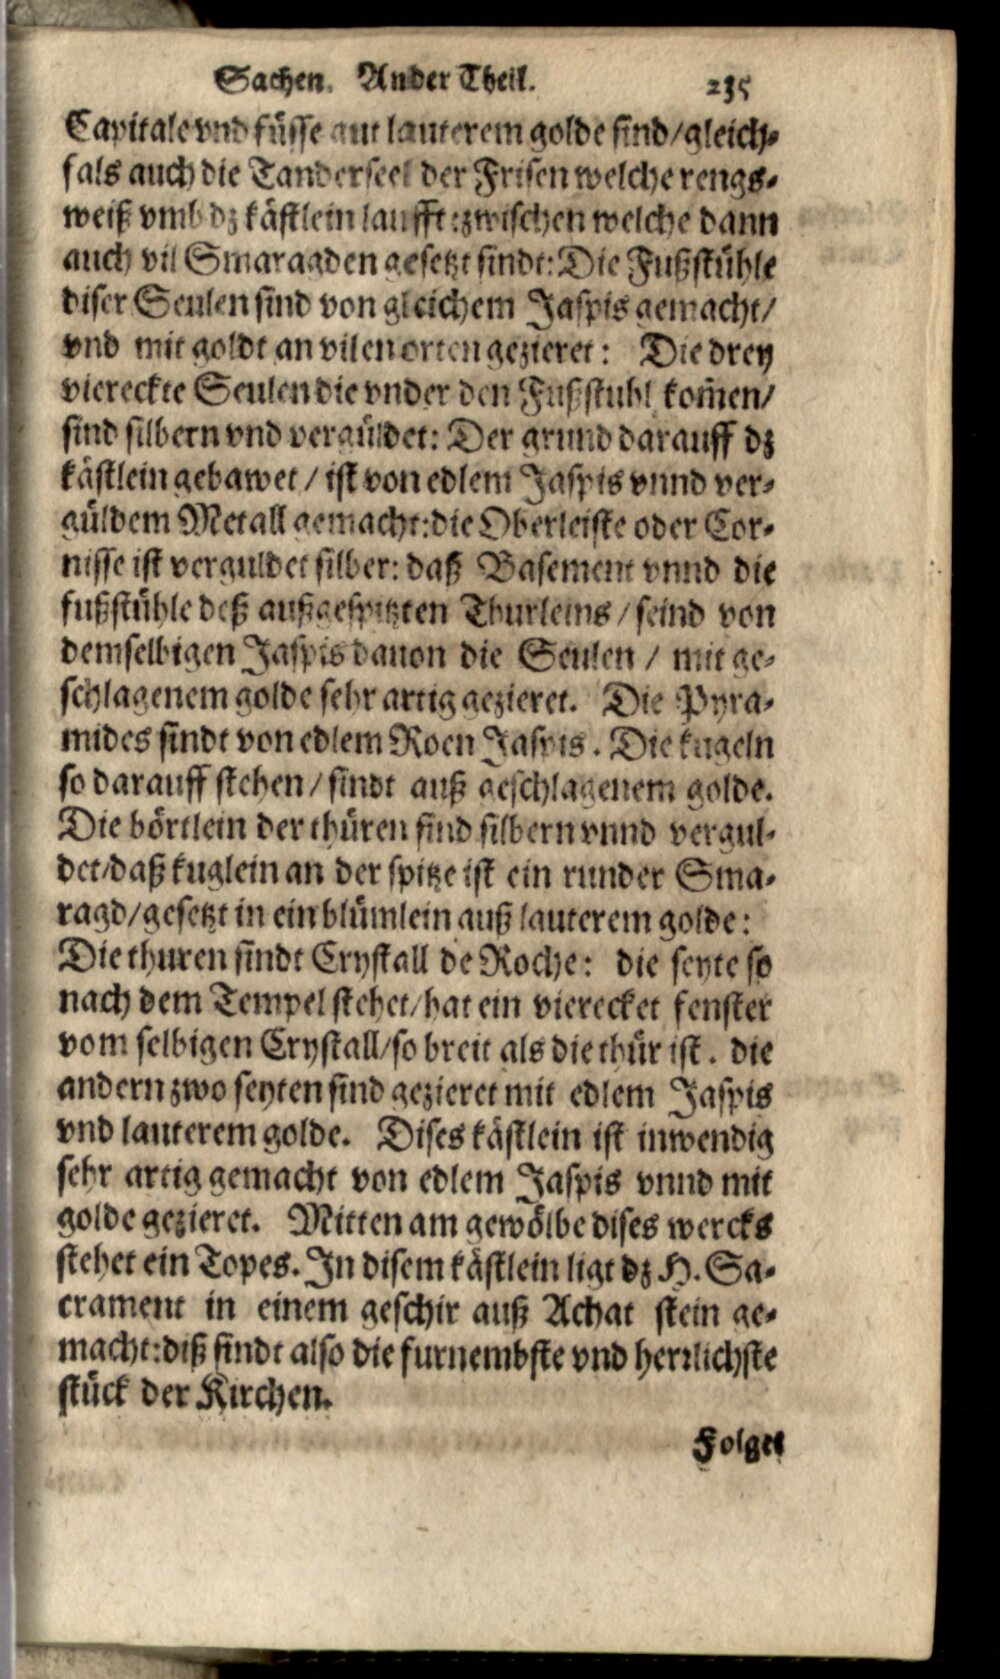 Sachen. Ander Theil. 235
Capitale vnd füsse aut lauterem golde sind/gleich-
fals auch die Tanderseel der Frisen welche rengs-
weiß vmb dz kästlein laufft: zwischen welche dann
auch vil Smaragden gesetzt sindt: Die Fußstühle
diser Seulen sind von gleichem Jaspis gemacht/
vnd mit goldt an vilen orten gezieret: Die drey
viereckte Seulen die vnder den Fußstuhl kom̃en/
sind silbern vnd vergüldet: Der grund darauff dz
kästlein gebawet / ist von edlem Jaspis vnnd ver-
güldem Metall gemacht: die Oberleiste oder Cor-
nisse ist verguldet silber: daß Basement vnnd die
fußstühle deß außgespitzten Thurleins / seind von
demselbigen Jaspis dauon die Seulen / mit ge-
schlagenem golde sehr artig gezieret. Die Pyra-
mides sindt von edlem Roen Jaspis. Die kugeln
so darauff stehen / sindt auß geschlagenem golde.
Die börtlein der thüren sind silbern vnnd vergul-
det/daß kuglein an der spitze ist ein runder Sma-
ragd/gesetzt in ein blümlein auß lauterem golde:
Die thuren sindt Crystall de Roche: die seyte so
nach dem Tempel stehet/hat ein vierecket fenster
vom selbigen Crystall/so breit als die thür ist. die
andern zwo seyten sind gezieret mit edlem Jaspis
vnd lauterem golde. Dises kästlein ist inwendig
sehr artig gemacht von edlem Jaspis vnnd mit
golde gezieret. Mitten am gewölbe dises wercks
stehet ein Topes. In disem kästlein ligt dz H. Sa-
crament in einem geschir auß Achat stein ge-
macht: diß sindt also die furnembste vnd herrlichste
stück der Kirchen.
Folget